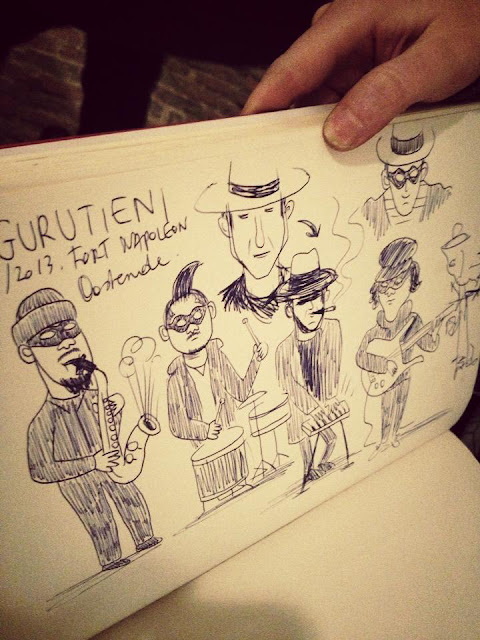 GURUTIEN
/2013. FORT NAPOLEON
Oostende.